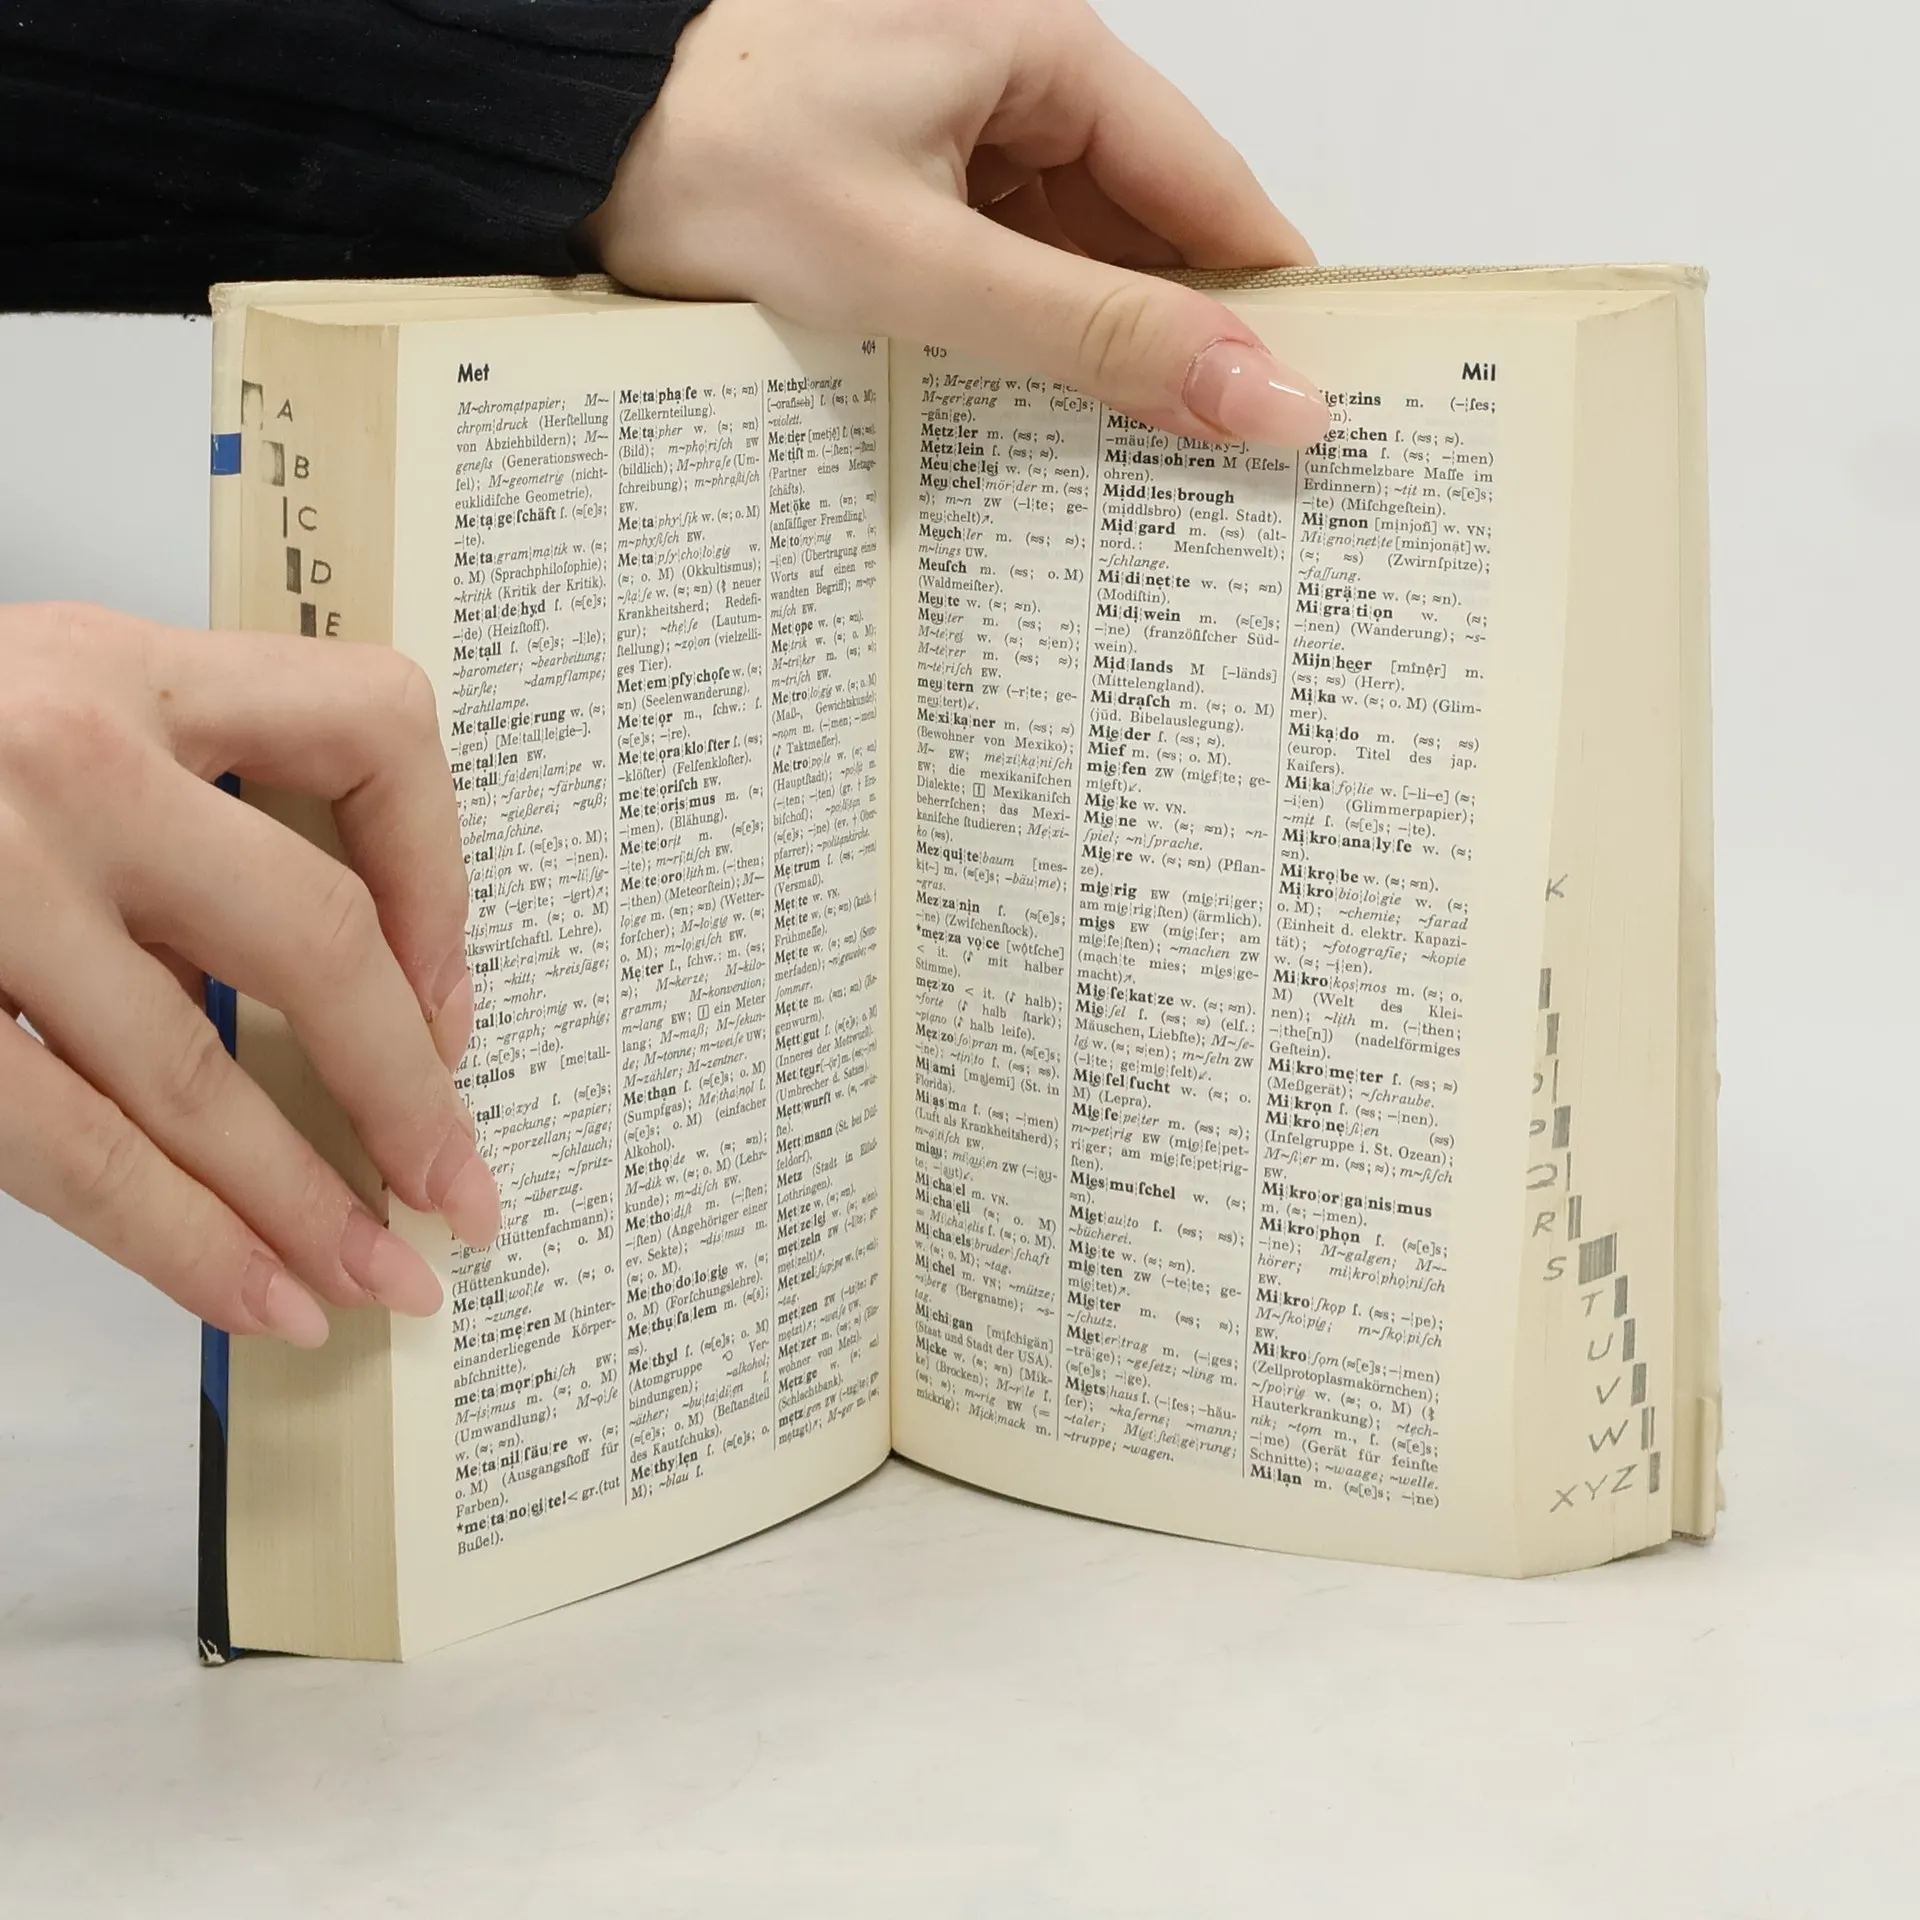 Met
404
M~chromatpapier; M~-
chrom|druck (Herſtellung
von Abziehbildern); M~-
geneſis (Generationswech-
ſel); M~geometrie (nicht-
euklidiſche Geometrie).
Me|ta|ge|ſchäft ſ. (≈[e]s;
–|te).
Me|ta|gram|ma|tik w. (≈;
o. M) (Sprachphiloſophie);
~kritik (Kritik der Kritik).
Met|al|de|hyd ſ. (≈[e]s;
–|de) (Heizſtoff).
Me|tall ſ. (≈[e]s; –|le);
~barometer; ~bearbeitung;
~bürſte; ~dampflampe;
~drahtlampe.
Me|talle|gie|rung w. (≈;
–|gen) [Me|tall|le|gie–].
me|tal|len EW.
Me|tall|fa|den|lam|pe w.
≈n); ~farbe; ~färbung;
~gießerei; ~guß;
w. (≈; –|nen).
EW; m~li|ſie-
ZW (–|ier|te; –|iert)↗;
m. (≈; o. M)
Lehre).
ke|ra|mik w. (≈;
~kitt; ~kreisſäge;
~mohr.
chro|mie w. (≈;
~graph; ~graphie;
ſ. (≈[e]s; –|de).
EW [me|tall-
o|xyd ſ. (≈[e]s;
~packung; ~papier;
~porzellan; ~ſäge;
~ſchlauch;
~ſchutz; ~ſpritz-
~überzug.
m. (–|gen;
(Hüttenfachmann);
~urgie w. (≈; o. M)
(Hüttenkunde).
Me|tall|wol|le w. (≈; o.
M); ~zunge.
Me|ta|me|ren M (hinter-
einanderliegende Körper-
abſchnitte).
me|ta|mor|phiſch EW;
M~is|mus m. (≈; o. M)
(Umwandlung); M~o|ſe
w. (≈; ≈n).
Me|ta|nil|ſäu|re w. (≈;
o. M) (Ausgangsſtoff für
Farben).
*me|ta|no|ei|te! < gr. (tut
Buße!).
Me|ta|pha|ſe w. (≈; ≈n)
(Zellkernteilung).
Me|ta|pher w. (≈; ≈n)
(Bild); m~pho|riſch EW
(bildlich); M~phra|ſe (Um-
ſchreibung); m~phra|ſtiſch
EW.
Me|ta|phy|ſik w. (≈; o. M)
m~phy|ſiſch EW.
Me|ta|pſy|cho|lo|gie w.
(≈; o. M) (Okkultismus);
~ſta|ſe w. (≈; ≈n) (⚕ neuer
Krankheitsherd; Redefi-
gur); ~the|ſe (Lautum-
ſtellung); ~zo|on (vielzelli-
ges Tier).
Met|em|pſy|cho|ſe w. (≈;
≈n) (Seelenwanderung).
Me|te|or m., ſchw.: ſ.
(≈[e]s; –|re).
Me|te|ora|klo|ſter ſ. (≈s;
–klöſter) (Felſenkloſter).
me|te|o|riſch EW.
Me|te|o|ris|mus m. (≈;
–|men). (Blähung).
Me|te|o|rit m. (≈[e]s;
–|te); m~ri|tiſch EW.
Me|te|o|ro|lith m. (–|then;
–|then) (Meteorſtein); M~-
lo|ge m. (≈n; ≈n) (Wetter-
forſcher); M~lo|gie w. (≈;
o. M); m~lo|giſch EW.
Me|ter ſ., ſchw.: m. (≈s;
≈); M~kerze; M~kilo-
gramm; M~konvention;
m~lang EW; ein Meter
lang; M~maß; M~ſekun-
de; M~tonne; m~wei|ſe UW;
M~zähler; M~zentner.
Me|than ſ. (≈[e]s; o. M)
(Sumpfgas); Me|tha|nol ſ.
(≈[e]s; o. M) (einfacher
Alkohol).
Me|tho|de w. (≈; ≈n);
M~dik w. (≈; o. M) (Lehr-
kunde); m~diſch EW.
Me|tho|diſt m. (–|ſten;
–|ſten) (Angehöriger einer
ev. Sekte); ~dis|mus m.
(≈; o. M).
Me|tho|do|lo|gie w. (≈;
o. M) (Forſchungslehre).
Me|thu|ſa|lem m. (≈[s];
≈s).
Me|thyl ſ. (≈[e]s; o. M)
(Atomgruppe Ver-
bindungen); ~alkohol;
~äther; ~bu|ta|di|en ſ.
(≈[e]s; o. M) (Beſtandteil
des Kautſchuks).
Me|thy|len ſ. (≈[e]s; o.
M); ~blau ſ.
Me|thyl|oran|ge
[–oraſiſch] ſ. (≈s; o. M);
~violett.
Me|tier [metje] ſ. (≈s; ≈s).
Me|tiſt m. (–|ſten; –|ſten)
(Partner eines Metage-
ſchäfts).
Met|öke m. (≈n; ≈n)
(anſäſſiger Fremdling).
Me|to|ny|mie w. (≈;
–|ien) (Übertragung eines
Worts auf einen ver-
wandten Begriff); m~ny-
miſch EW.
Met|ope w. (≈; ≈n).
Me|trik w. (≈; o. M);
M~tri|ker m. (≈s; ≈);
m~triſch EW.
Me|tro|lo|gie w. (≈; o. M)
(Maß-, Gewichtskunde);
~nom m. (–|men; –|men)
(♪ Taktmeſſer).
Me|tro|po|le w. (≈; ≈n)
(Hauptſtadt); ~po|lit m.
(–|ten; –|ten) (gr. † Erz-
biſchof); ~po|li|tan m.
(≈[e]s; –|ne) (ev. † Ober-
pfarrer); ~politankirche.
Me|trum ſ. (≈s; –|ren)
(Versmaß).
Met|te w. VN.
Met|te w. (≈; ≈n) (kath. †
Frühmeſſe).
Met|te w. (≈; ≈n) (Som-
merfaden); ~n|gewebe; ~n-
ſommer.
Met|te m. (≈n; ≈n) (Re-
genwurm).
Mett|gut ſ. (≈[e]s; o. M)
(Inneres der Mettwurſt).
Met|teur [–ör] m. (≈s; ≈e)
(Umbrecher d. Satzes).
Mett|wurſt w. (≈; –wür-
ſte).
Mett|mann (St. bei Düſ-
ſeldorf).
Metz (Stadt in Elſaß-
Lothringen).
Met|ze w. (≈; ≈n).
Met|ze|lei w. (≈; ≈en);
met|zeln ZW (–|te; ge-
met|zelt)↗.
Met|zel|ſup|pe w. (≈; ≈n);
~tag.
met|zen ZW
metzt)↗; ~wei|ſe UW.
Met|zer m. (≈s; ≈) (Ein-
wohner von Metz).
Metz|ge w. (≈; ≈n)
(Schlachtbank).
metz|gen ZW
metzgt)↗; M~ger m. (≈s;
405
Mil
≈); M~ge|rei w. (≈;
M~ger|gang m. (≈[e]s;
–gän|ge).
Metz|ler m. (≈s; ≈).
Metz|lein ſ. (≈s; ≈).
Meu|che|lei w. (≈; ≈en).
Meu|chel|mör|der m. (≈s;
≈); m~n ZW (–l|te; ge-
meu|chelt)↗.
Meuch|ler m. (≈s; ≈);
m~lings UW.
Meuſch m. (≈s; o. M)
(Waldmeiſter).
Meu|te w. (≈; ≈n).
Meu|ter m. (≈s; ≈);
M~te|rei w. (≈; ≈|en);
M~te|rer m. (≈s; ≈);
m~te|riſch EW.
meu|tern ZW (–r|te; ge-
meu|tert)↙.
Me|xi|ka|ner m. (≈s; ≈)
(Bewohner von Mexiko);
M~ EW; me|xi|ka|niſch
EW; die mexikaniſchen
Dialekte; Mexikaniſch
beherrſchen; das Mexi-
kaniſche ſtudieren; Me|xi-
ko (≈s).
Mez|qui|te|baum [mes-
kit~] m. (≈[e]s; –bäu|me);
~gras.
Mez|za|nin ſ. (≈[e]s;
–|ne) (Zwiſchenſtock).
*mez|za vo|ce [wotſche]
< it. (♪ mit halber
Stimme).
mez|zo < it. (♪ halb);
~forte (♪ halb ſtark);
~piano (♪ halb leiſe).
Mez|zo|ſo|pran m. (≈[e]s;
–|ne); ~tin|to ſ. (≈s; ≈s).
Mi|ami [majemi] (St. in
Florida).
Mi|as|ma ſ. (≈s; –|men)
(Luft als Krankheitsherd);
m~a|tiſch EW.
miau; mi|au|en ZW (–|au-
te; –|aut)↙.
Mi|cha|el m. VN.
Mi|cha|eli (≈; o. M)
= Mi|cha|elis ſ. (≈; o. M).
Mi|cha|els|bruder|ſchaft
w. (≈; o. M); ~tag.
Mi|chel m. VN; ~mütze;
~s|berg (Bergname); ~s-
tag.
Mi|chi|gan [miſchigän]
(Staat und Stadt der USA).
Micke w. (≈; ≈n) [Mik-
ke] (Brocken); M~r|le ſ.
(≈s; ≈); m~rig EW (=
mickrig); Mick|mack m.
Micky
–mäu|ſe) [Mik|ky–].
Mi|das|oh|ren M (Eſels-
ohren).
Midd|les|brough
(middlsbro) (engl. Stadt).
Mid|gard m. (≈s) (alt-
nord.: Menſchenwelt);
~ſchlange.
Mi|di|net|te w. (≈; ≈n)
(Modiſtin).
Mi|di|wein m. (≈[e]s;
–|ne) (franzöſiſcher Süd-
wein).
Mid|lands M [–länds]
(Mittelengland).
Mi|draſch m. (≈; o. M)
(jüd. Bibelauslegung).
Mie|der ſ. (≈s; ≈).
Mief m. (≈s; o. M).
mie|fen ZW (mief|te; ge-
mieft)↙.
Mie|ke w. VN.
Mie|ne w. (≈; ≈n); ~n-
ſpiel; ~n|ſprache.
Mie|re w. (≈; ≈n) (Pflan-
ze).
mie|rig EW (mie|ri|ger;
am mie|rig|ſten) (ärmlich).
mies EW (mie|ſer; am
mie|ſe|ſten); ~machen ZW
(mach|te mies; mies|ge-
macht)↗.
Mie|ſe|kat|ze w. (≈; ≈n).
Mie|ſel ſ. (≈s; ≈) (elſ.:
Mäuschen, Liebſte); M~ſe-
lei w. (≈; ≈|en); m~ſeln ZW
(–l|te; ge|mie|ſelt)↙.
Mie|ſel|ſucht w. (≈; o.
M) (Lepra).
Mie|ſe|pe|ter m. (≈s; ≈);
m~pet|rig EW (mie|ſe|pet-
ri|ger; am mie|ſe|pet|rig-
ſten).
Mies|mu|ſchel w. (≈;
≈n).
Miet|au|to ſ. (≈s; ≈s);
~bücherei.
Mie|te w. (≈; ≈n).
mie|ten ZW (–te|te; ge-
mie|tet)↗.
Mie|ter m. (≈s; ≈);
~ſchutz.
Miet|er|trag m. (–|ges;
–trä|ge); ~geſetz; ~ling m.
(≈[e]s; –|ge).
Miets|haus ſ. (–|ſes; –häu-
ſer); ~kaſerne; ~mann;
~taler; Miet|ſtei|ge|rung;
~truppe; ~wagen.
zins m. (–|ſes;
Miez|chen ſ. (≈s; ≈).
Mig|ma ſ. (≈s; –|men)
(unſchmelzbare Maſſe im
Erdinnern); ~tit m. (≈[e]s;
–|te) (Miſchgeſtein).
Mi|gnon [minjoñ] w. VN;
Mi|gno|net|te [minjonät] w.
(≈; ≈s) (Zwirnſpitze);
~faſſung.
Mi|grä|ne w. (≈; ≈n).
Mi|gra|ti|on w. (≈;
–|nen) (Wanderung); ~s-
theorie.
Mijn|heer [mſner] m.
(≈s; ≈s) (Herr).
Mi|ka w. (≈; o. M) (Glim-
mer).
Mi|ka|do m. (≈s; ≈s)
(europ. Titel des jap.
Kaiſers).
Mi|ka|fo|lie w. [–li–e] (≈;
–i|en) (Glimmerpapier);
~mit ſ. (≈[e]s; –|te).
Mi|kro|ana|ly|ſe w. (≈;
≈n).
Mi|kro|be w. (≈; ≈n).
Mi|kro|bio|lo|gie w. (≈;
o. M); ~chemie; ~farad
(Einheit d. elektr. Kapazi-
tät); ~fotografie; ~kopie
w. (≈; –|i|en).
Mi|kro|kos|mos m. (≈; o.
M) (Welt des Klei-
nen); ~lith m. (–|then;
–|the[n]) (nadelförmiges
Geſtein).
Mi|kro|me|ter ſ. (≈s; ≈)
(Meßgerät); ~ſchraube.
Mi|kron ſ. (≈s; –|nen).
Mi|kro|ne|ſi|en (≈s)
(Inſelgruppe i. St. Ozean);
M~ſi|er m. (≈s; ≈); m~ſiſch
EW.
Mi|kro|or|ga|nis|mus
m. (≈; –|men).
Mi|kro|phon ſ. (≈[e]s;
–|ne); M~galgen; M~-
hörer; mi|kro|pho|niſch
EW.
Mi|kro|ſkop ſ. (≈s; –|pe);
M~ſko|pie; m~ſko|piſch
EW.
Mi|kro|ſom (≈[e]s; –|men)
(Zellprotoplasmakörnchen);
~ſpo|rie w. (≈; o. M) (⚕
Hauterkrankung); ~tech-
nik; ~tom m., ſ. (≈[e]s;
–|me) (Gerät für feinſte
Schnitte); ~waage; ~welle.
Mi|lan m. (≈[e]s; –|ne)
A
B
C
D
E
K
P
Q
R
S
T
U
V
W
XYZ